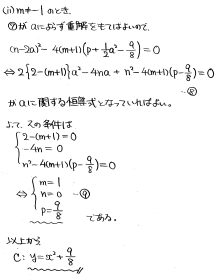 (ii) m≠-1 のとき,
⑦が aによらず重解をもてばよいので,
(n-2a)² - 4(m+1)(p + 1/2 a² - 9/8) = 0
⇔ 2{2-(m+1)}a² - 4na + n² - 4(m+1)(p - 9/8) = 0
-⑧
が aに関する恒等式となっていればよい。
よって, その条件は
{ 2-(m+1) = 0
-4n = 0
n² - 4(m+1)(p - 9/8) = 0
⇔ { m = 1
n = 0 -⑨
p = 9/8 である。
以上から
C: y = x² + 9/8